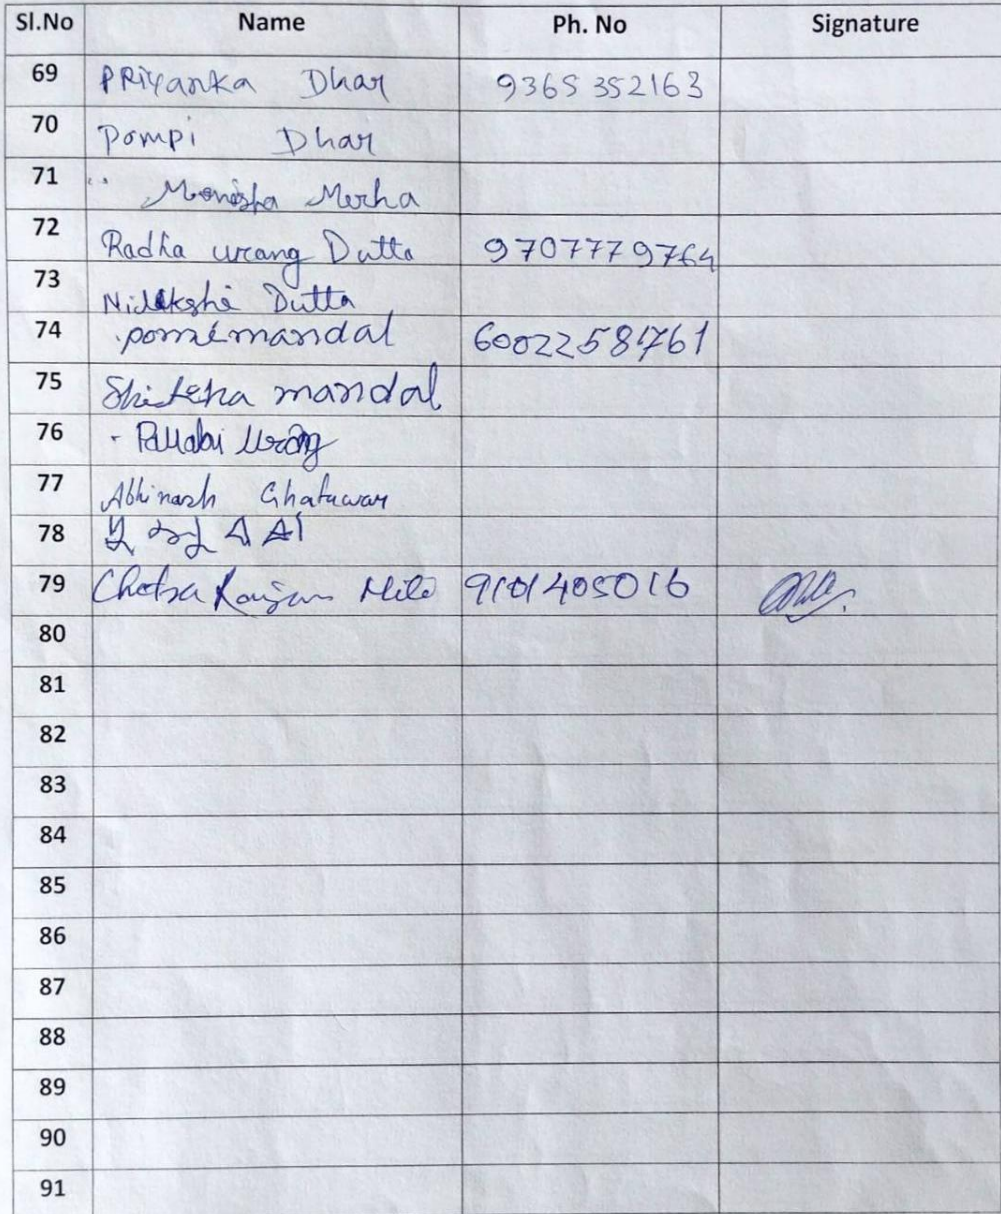 Sl.No Name Ph. No Signature
69 PRiyanka Dhar 9365352163
70 Pompi Dhar
71 Monisha Merha
72 Radha urang Dutta 9707779764
73 Dutta
74 pomi mandal 6002258761
75 mandal
76 Pallabi Urang
77 Abhinash Ghatuwar
78
79 9101405016
80
81
82
83
84
85
86
87
88
89
90
91